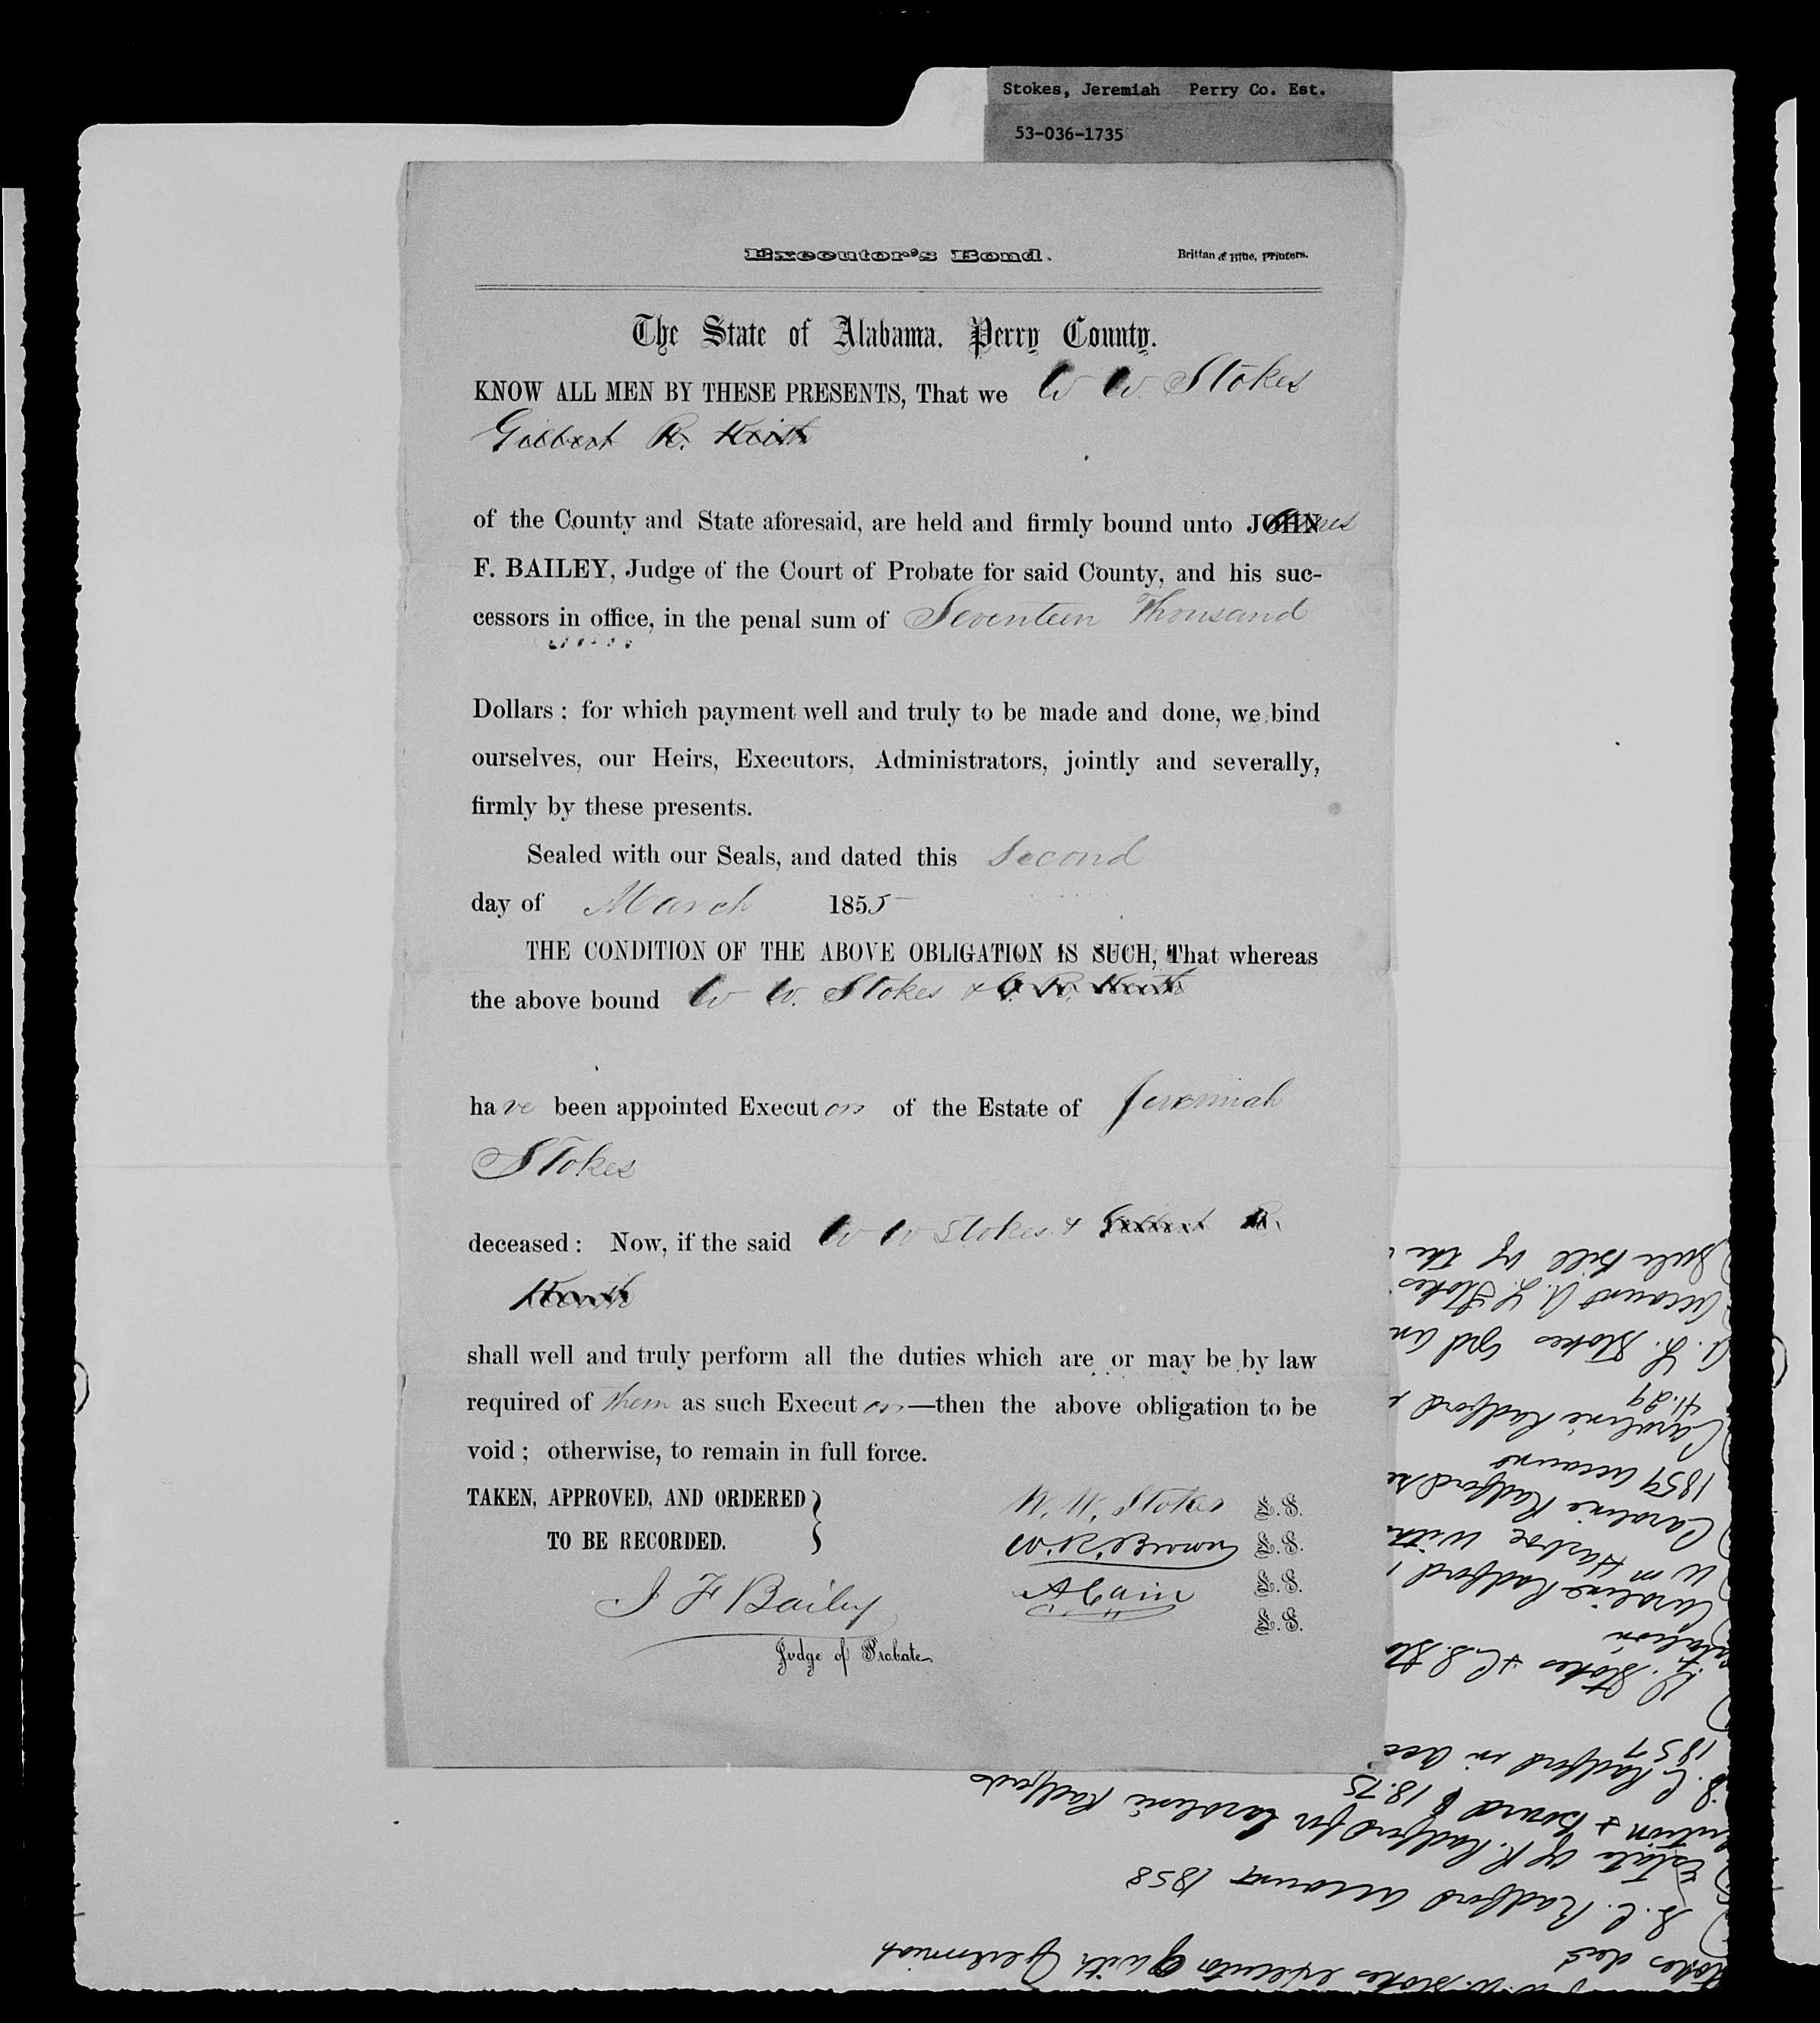 Stokes, Jeremiah Perry Co. Est.
53-036-1735
Executor's Bond.
Brittan & Blue, Printers.
The State of Alabama, Perry County.
KNOW ALL MEN BY THESE PRESENTS, That we W W. Stokes
Gilbert R. Keith
of the County and State aforesaid, are held and firmly bound unto JOHN
F. BAILEY, Judge of the Court of Probate for said County, and his suc-
cessors in office, in the penal sum of Seventeen Thousand
Dollars; for which payment well and truly to be made and done, we bind
ourselves, our Heirs, Executors, Administrators, jointly and severally,
firmly by these presents.
Sealed with our Seals, and dated this Second
day of March 1855
THE CONDITION OF THE ABOVE OBLIGATION IS SUCH, That whereas
the above bound W W. Stokes & G. R. Keith
have been appointed Executors of the Estate of Jeremiah
Stokes
deceased: Now, if the said W W Stokes & Gilbert R.
Keith
shall well and truly perform all the duties which are or may be by law
required of them as such Executors—then the above obligation to be
void; otherwise, to remain in full force.
TAKEN, APPROVED, AND ORDERED
TO BE RECORDED.
W. W. Stokes L. S.
L. S.
A Cain L. S.
L. S.
J F Bailey
Judge of Probate.
W. Stokes executor of with Jeremiah
Stokes
S. C. Radford account 1858
Estate of R. Radford for Caroline Radford
& board $ 18.75
S. C. Radford in acc
1857
Stokes & C. S. Sto
Caroline Radford
Wm
Caroline Radford
1859 account
Caroline Radford
41.29
A. L. Stokes
account A. L. Stokes
Sale Bill of the